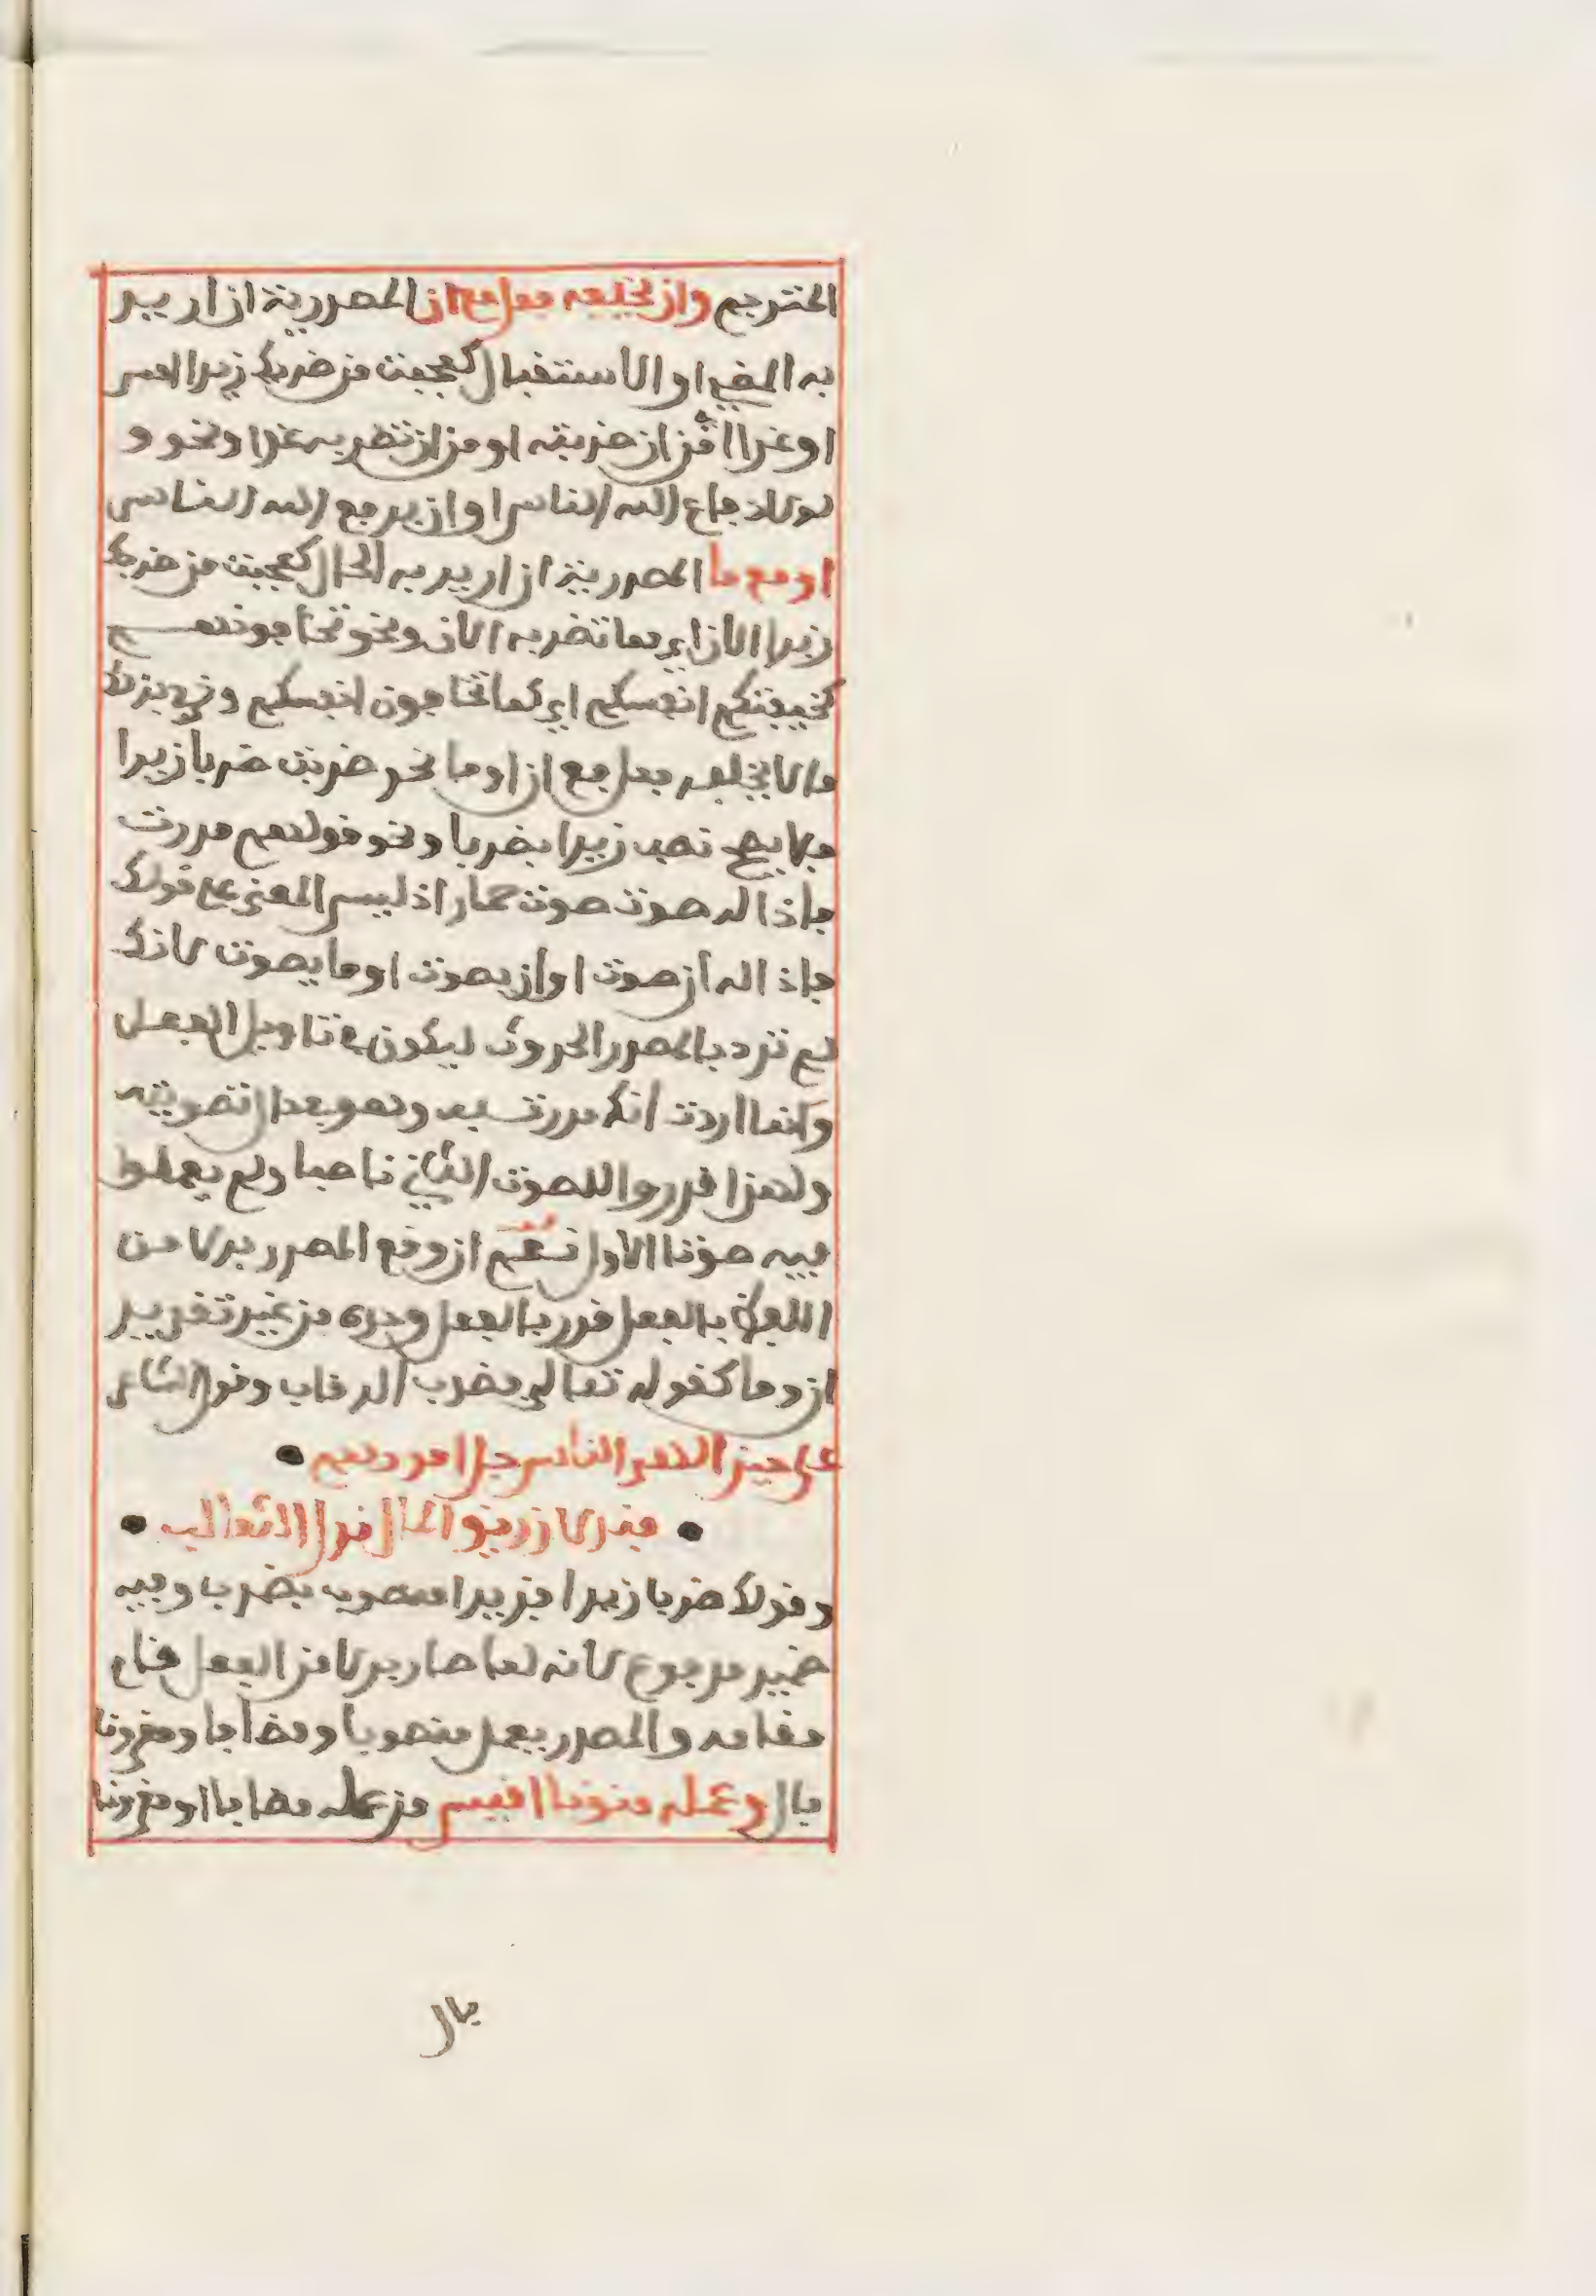 المترجم وان يخلفه فعل مع ان المصدرية ان اريد
به المضي او الاستقبال كعجبت من ضربك زيدا امس
او غدا اي من ان ضربته او من ان تضربه غدا ونحو و
لولا دفاع الله الناس اي وان يدفع الله الناس
او مع ما المصدرية ان اريد به الحال كعجبت من ضربك
زيدا الان اي مما تضربه الان ونحو تخافونهم
كخيفتكم انفسكم اي كما تخافون انفسكم وخرج بذلك
ما لا يخلفه فعل مع ان او ما نحو ضربت ضربا زيدا
فلا يصح نصب زيدا بضربا ونحو قولهم مررت
فاذا له صوت صوت حمار اذ ليس المعنى على قولك
فاذا له ان صوت او ان يصوت او ما يصوت لانك
لم ترد بالمصدر الحدوث ليكون في تاويل الفعل
وانما اردت انك مررت به وهو بعد ال تصويته
ولهذا قدروا للصوت الثاني ناصبا ولم يعملوا
فيه صوتا الاول نعم ان وقع المصدر بدلا من
اللفظ بالفعل قدر بالفعل وحده من غير تقدير
ان وما كقوله تعالى فضرب الرقاب وقول الشاعر
على حين الهى الناس جل امورهم
فندلا زريق المال ندل الثعالب
وقولك ضربا زيدا فزيدا منصوب بضربا وفيه
ضمير مرفوع لانه لما صار بدلا من الفعل قام
مقامه والمصدر يعمل منصوبا ومضافا ومقرونا
بال وعمله منونا اقيس من عمله مضافا او مقرونا
بال